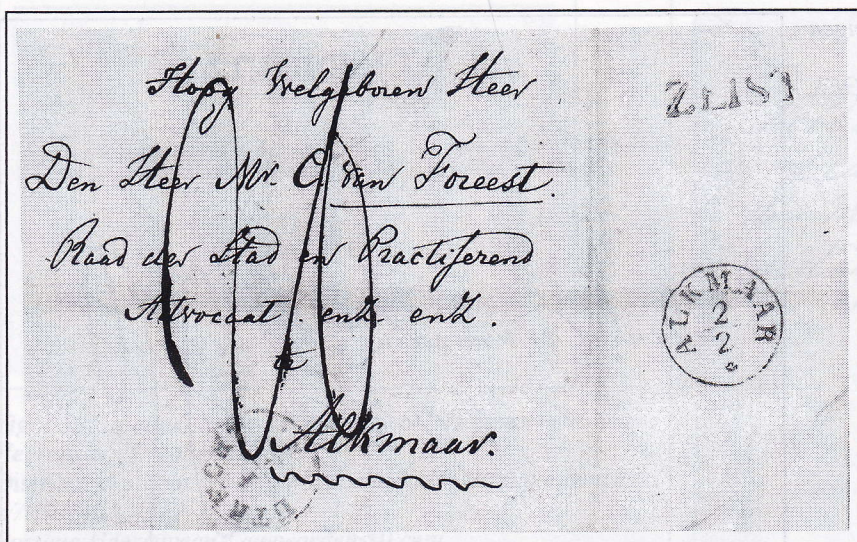 Hoog Welgeboren Heer
ZEIST
Den Heer Mr. C. van Foreest.
Raad der Stad en Practiserend
Advocaat. enz enz.
te
Alkmaar.
ALKMAAR
2
2
UTRECHT